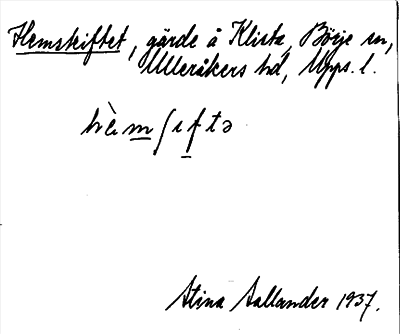 Hemskiftet, gärde å Klista, Börje sn,
Ulleråkers hd, Upps. l.
hèmʃıftə
Stina Sallander 1937.